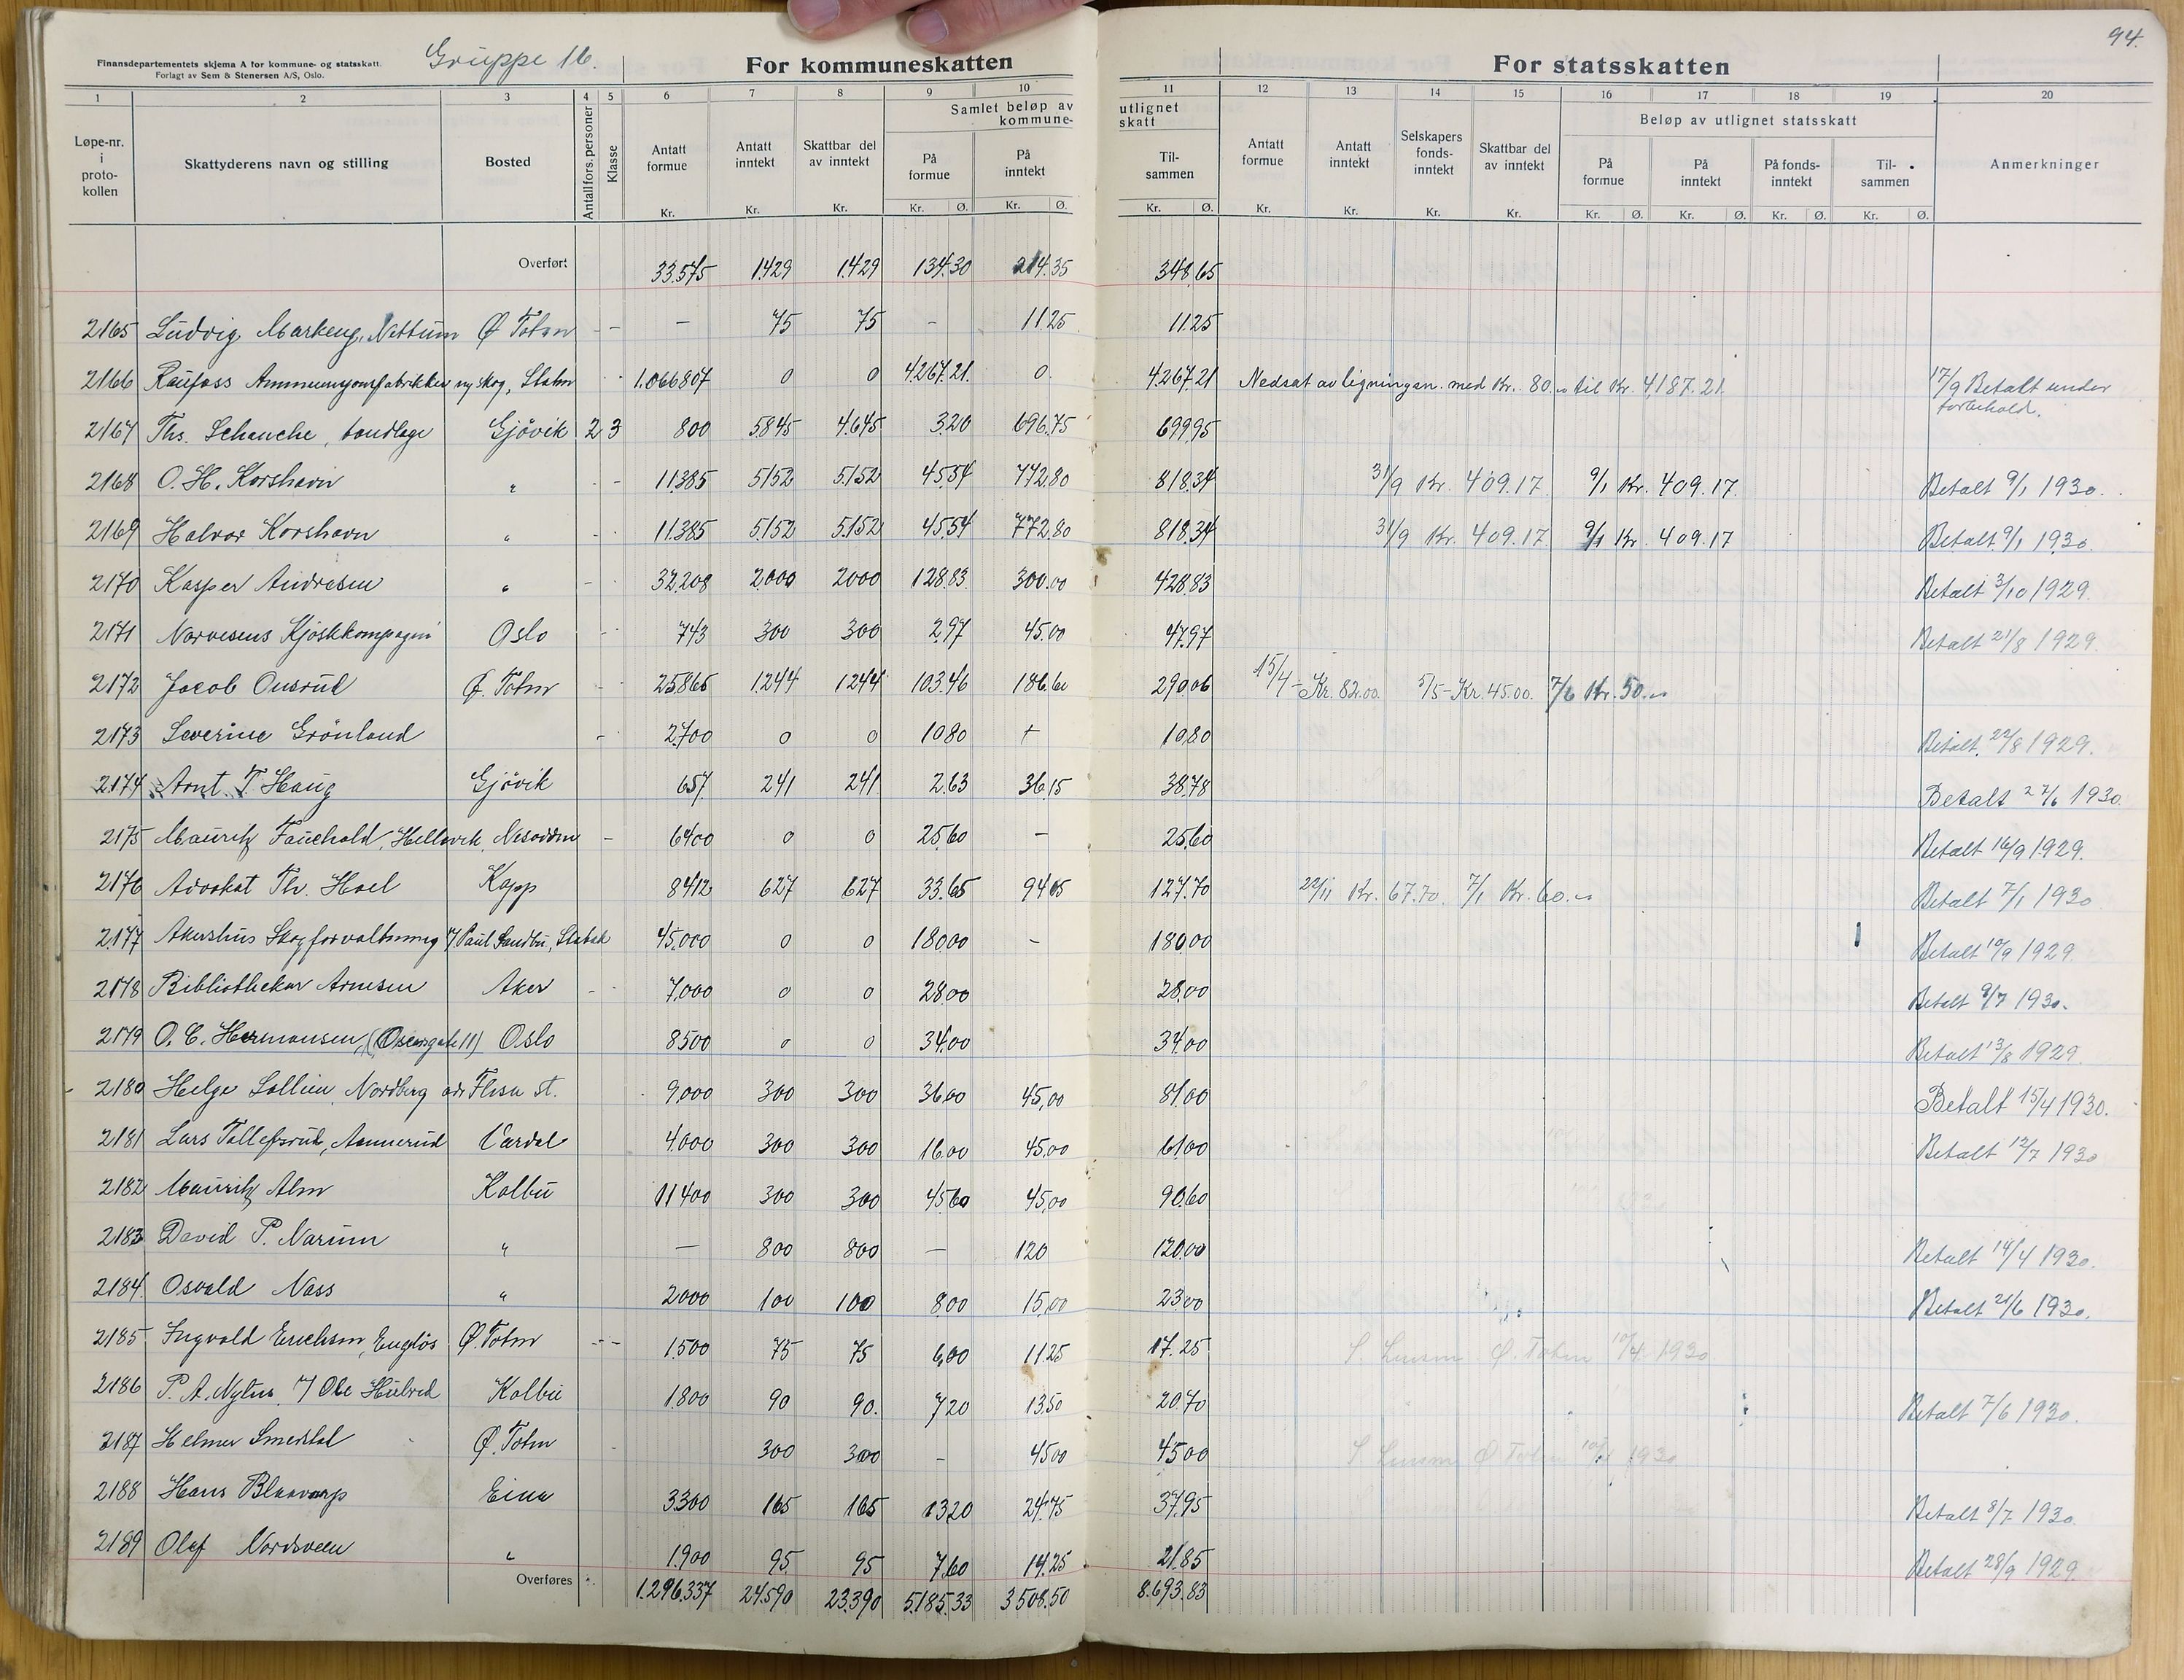 94.
Finansdepartementets skjema A for kommune- og statsskatt.
Forlagt av Sem & Stenersen A/S, Oslo.
Gruppe 16.
For kommuneskatten
For statsskatten
1 2 3 4 5 6 7 8 9 10 11 12 13 14 15 16 17 18 19 20
Løpe-nr. i proto-kollen
Skattyderens navn og stilling
Bosted
Antall fors. personer
Klasse
Antatt formue Kr.
Antatt inntekt Kr.
Skattbar del av inntekt Kr.
Samlet beløp av utlignet kommune-skatt
På formue Kr. Ø.
På inntekt Kr. Ø.
Til-sammen Kr. Ø.
Antatt formue Kr.
Antatt inntekt Kr.
Selskapers fonds-inntekt Kr.
Skattbar del av inntekt Kr.
Beløp av utlignet statsskatt
På formue Kr. Ø.
På inntekt Kr. Ø.
På fonds-inntekt Kr. Ø.
Til-sammen Kr. Ø.
Anmerkninger
Overført 33.575 1429 1.429 134.30 214.35 348.65
2165 Ludvig Markeng, Nettum Ø. Toten - - - 75 75 - 11.25 11.25
2166 Raufoss Ammunisjonsfabrikker ny skog, 1.066807 0 0 4.267.21. 0 4.267.21 Nedsat av ligningen med Kr. 80.- til Kr. 4,187.21. 17/9 Betalt under forbehold.
2167 Ths. Schanche, tandlæge Gjøvik 2 3 800 5.845 4.645 3.20 696.75 699.95
2168 O. H. Korshavn " - - 11.385 5152 5.152 45.54 772.80 818.34 31/9 Kr. 409.17. 9/1 Kr. 409.17. Betalt 9/1 1930.
2169 Halvor Korshavn " - 11.385 5.152 5.152 45.54 772.80 818.34 31/9 Kr. 409.17. 9/1 Kr. 409.17 Betalt 9/1 1930.
2170 Kasper Andresen " - 32.208 2.000 2000 128.83 300.00 428.83 Betalt 3/10 1929.
2171 Narvesens Kjoskkompagni Oslo - 743 300 300 2.97 45.00 47.97 Betalt 21/8 1929.
2172 Jacob Ousrud Ø. Toten - 25.865 1.244 1244 103.46 186.60 290.06 15/4 - Kr. 82.00. 5/5 - Kr. 45.00. 7/6 Kr. 50.-
2173 Severine Grønland - 2.700 0 0 10.80 + 10.80 Betalt 22/8 1929.
2174 Arnt. T. Haug Gjøvik 657 241 241 2.63 36.15 38.78 Betalt 27/6 1930.
2175 Mauritz Fauchald, Hellevik, Nesodden - 6400 0 0 25.60 - 25.60 Betalt 16/9 1929.
2176 Advokat Th. Hoel Kapp 8412 627 627 33.65 94.05 127.70 22/11 Kr. 67.70. 7/1 Kr. 60.- Betalt 7/1 1930
2177 Akershus Skogforvaltning v/ Paul Sandbu, Stabæk 45.000 0 0 180.00 - 180.00 Betalt 10/9 1929.
2178 Bibliothekar Arnesen Aker - 7.000 0 0 28.00 28.00 Betalt 9/7 1930.
2179 O. C. Hermansen, (Osensgate 11) Oslo 8500 0 0 34.00 34.00 Betalt 13/8 1929
2180 Helge Sollien, Nordberg adr Flisa st. 9.000 300 300 36.00 45,00 81.00 Betalt 15/4 1930.
2181 Lars Tollefsrud, Aannerud Vardal 4.000 300 300 16.00 45,00 61.00 Betalt 12/7 1930
2182 Mauritz Alm Kolbu 11400 300 300 45.60 45,00 90.60
2183 David P. Narum " - 800 800 - 120 120.00 Betalt 14/4 1930.
2184. Osvald Nass " 2000 100 100 8.00 15,00 23.00 Betalt 21/6 1930.
2185 Ingvald Erichsen, Engløs Ø. Toten - - 1.500 75 75 6,00 11.25 17.25 S. Lensm. Ø. Toten 10/4 1930
2186 P. A. Nylus v/ Ole Hulred Kolbu 1.800 90 90. 7.20 13.50 20.70 Betalt 7/6 1930.
2187 Helmer Smerdal Ø. Toten 300 300 - 45.00 45.00 S. Lensm. Ø. Toten 1930
2188 Hans Blaavarp Eina 3300 165 165 13.20 24.75 37.95 Betalt 8/7 1930.
2189 Olaf Nordsveen " 1.900 95 95 7.60 14.25 21.85 Betalt 28/9 1929.
Overføres 1.296.337 24.590 23.390 5.185.33 3508.50 8.693.83